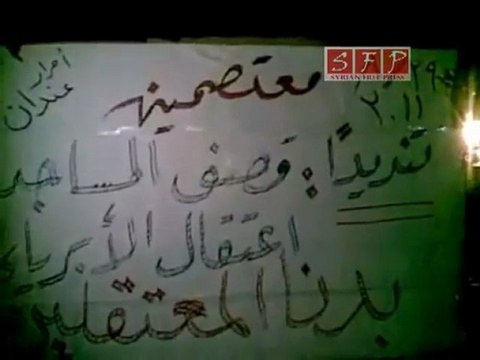 SFP
SYRIAN FREE PRESS
أحرار
عندان
٢٠١١
معتصمين
تنديداً : قصف المساجد
اعتقال الأبرياء
بدنا المعتقلين